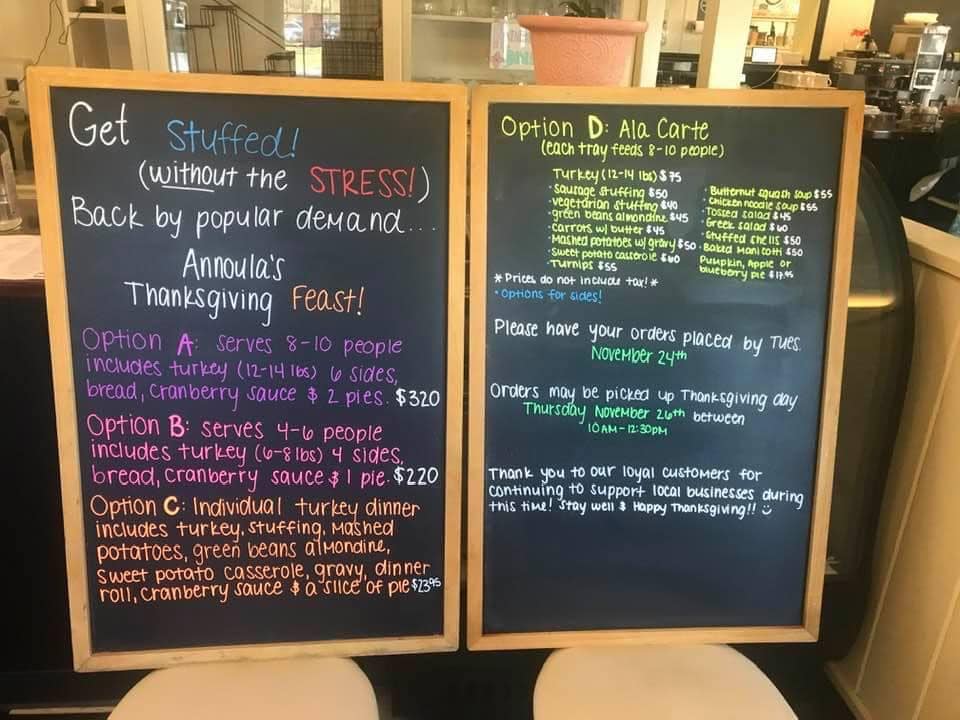 Get Stuffed!
(without the STRESS!)
Back by popular demand...
Annoula's
Thanksgiving Feast!
Option A: serves 8-10 people
includes turkey (12-14 lbs) 6 sides,
bread, cranberry sauce & 2 pies. $320
Option B: serves 4-6 people
includes turkey (6-8 lbs) 4 sides,
bread, cranberry sauce & 1 pie. $220
Option C: Individual turkey dinner
includes turkey, stuffing, mashed
potatoes, green beans almondine,
sweet potato casserole, gravy, dinner
roll, cranberry sauce & a slice of pie $23.95
Option D: Ala Carte
(each tray feeds 8-10 people)
Turkey (12-14 lbs) $75
· Sausage stuffing $50
· vegetarian stuffing $40
· green beans almondine $45
· carrots w/ butter $45
· Mashed potatoes w/ gravy $50
· Sweet potato casserole $60
· Turnips $55
· Butternut squash soup $55
· Chicken noodle soup $55
· Tossed salad $45
· Greek salad $60
· Stuffed shells $50
· Baked Manicotti $50
Pumpkin, Apple or
blueberry pie $17.95
* Prices do not include tax! *
· Options for sides!
Please have your orders placed by Tues.
November 24th
Orders may be picked up Thanksgiving day
Thursday November 26th between
10AM-12:30PM
Thank you to our loyal customers for
continuing to support local businesses during
this time! Stay well & Happy Thanksgiving!!